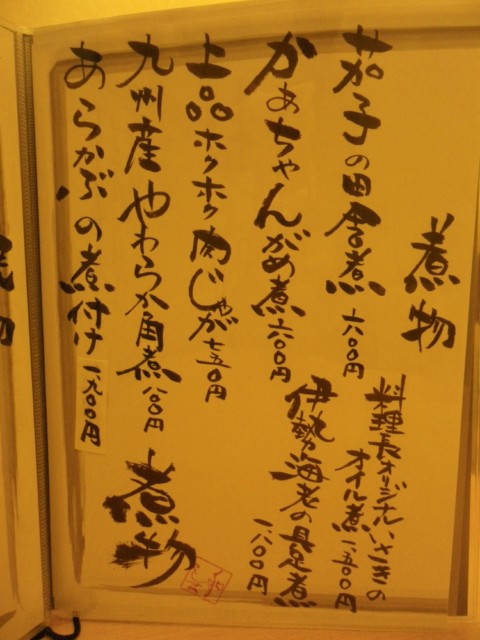 煮物
茄子の田舎煮 六〇〇円
かぁちゃんがめ煮 六〇〇円
上品ホクホク肉じゃが 七五〇円
九州産やわらか角煮 八〇〇円
あらかぶの煮付け 一九〇〇円
料理長オリジナルいさきの
オイル煮 一、五〇〇円
伊勢海老の具足煮
一八〇〇円
煮物